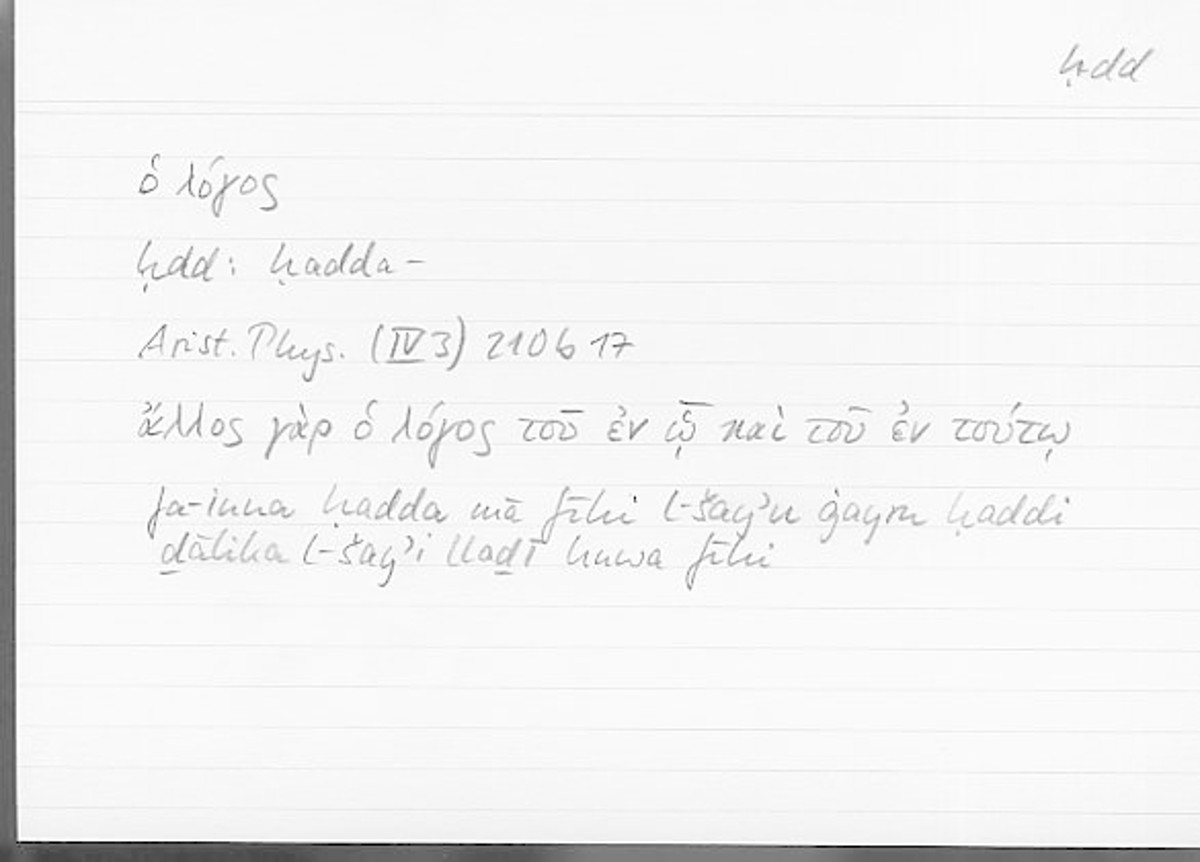 ḥdd
ὁ λόγος
ḥdd: ḥadda-
Arist. Phys. (IV 3) 210 b 17
ἄλλος γὰρ ὁ λόγος τοῦ ἐν ᾧ καὶ τοῦ ἐν τούτῳ
fa-inna ḥadda mā fīhi l-šayʾu ġayru ḥaddi
ḏālika l-šayʾi llaḏī huwa fīhi